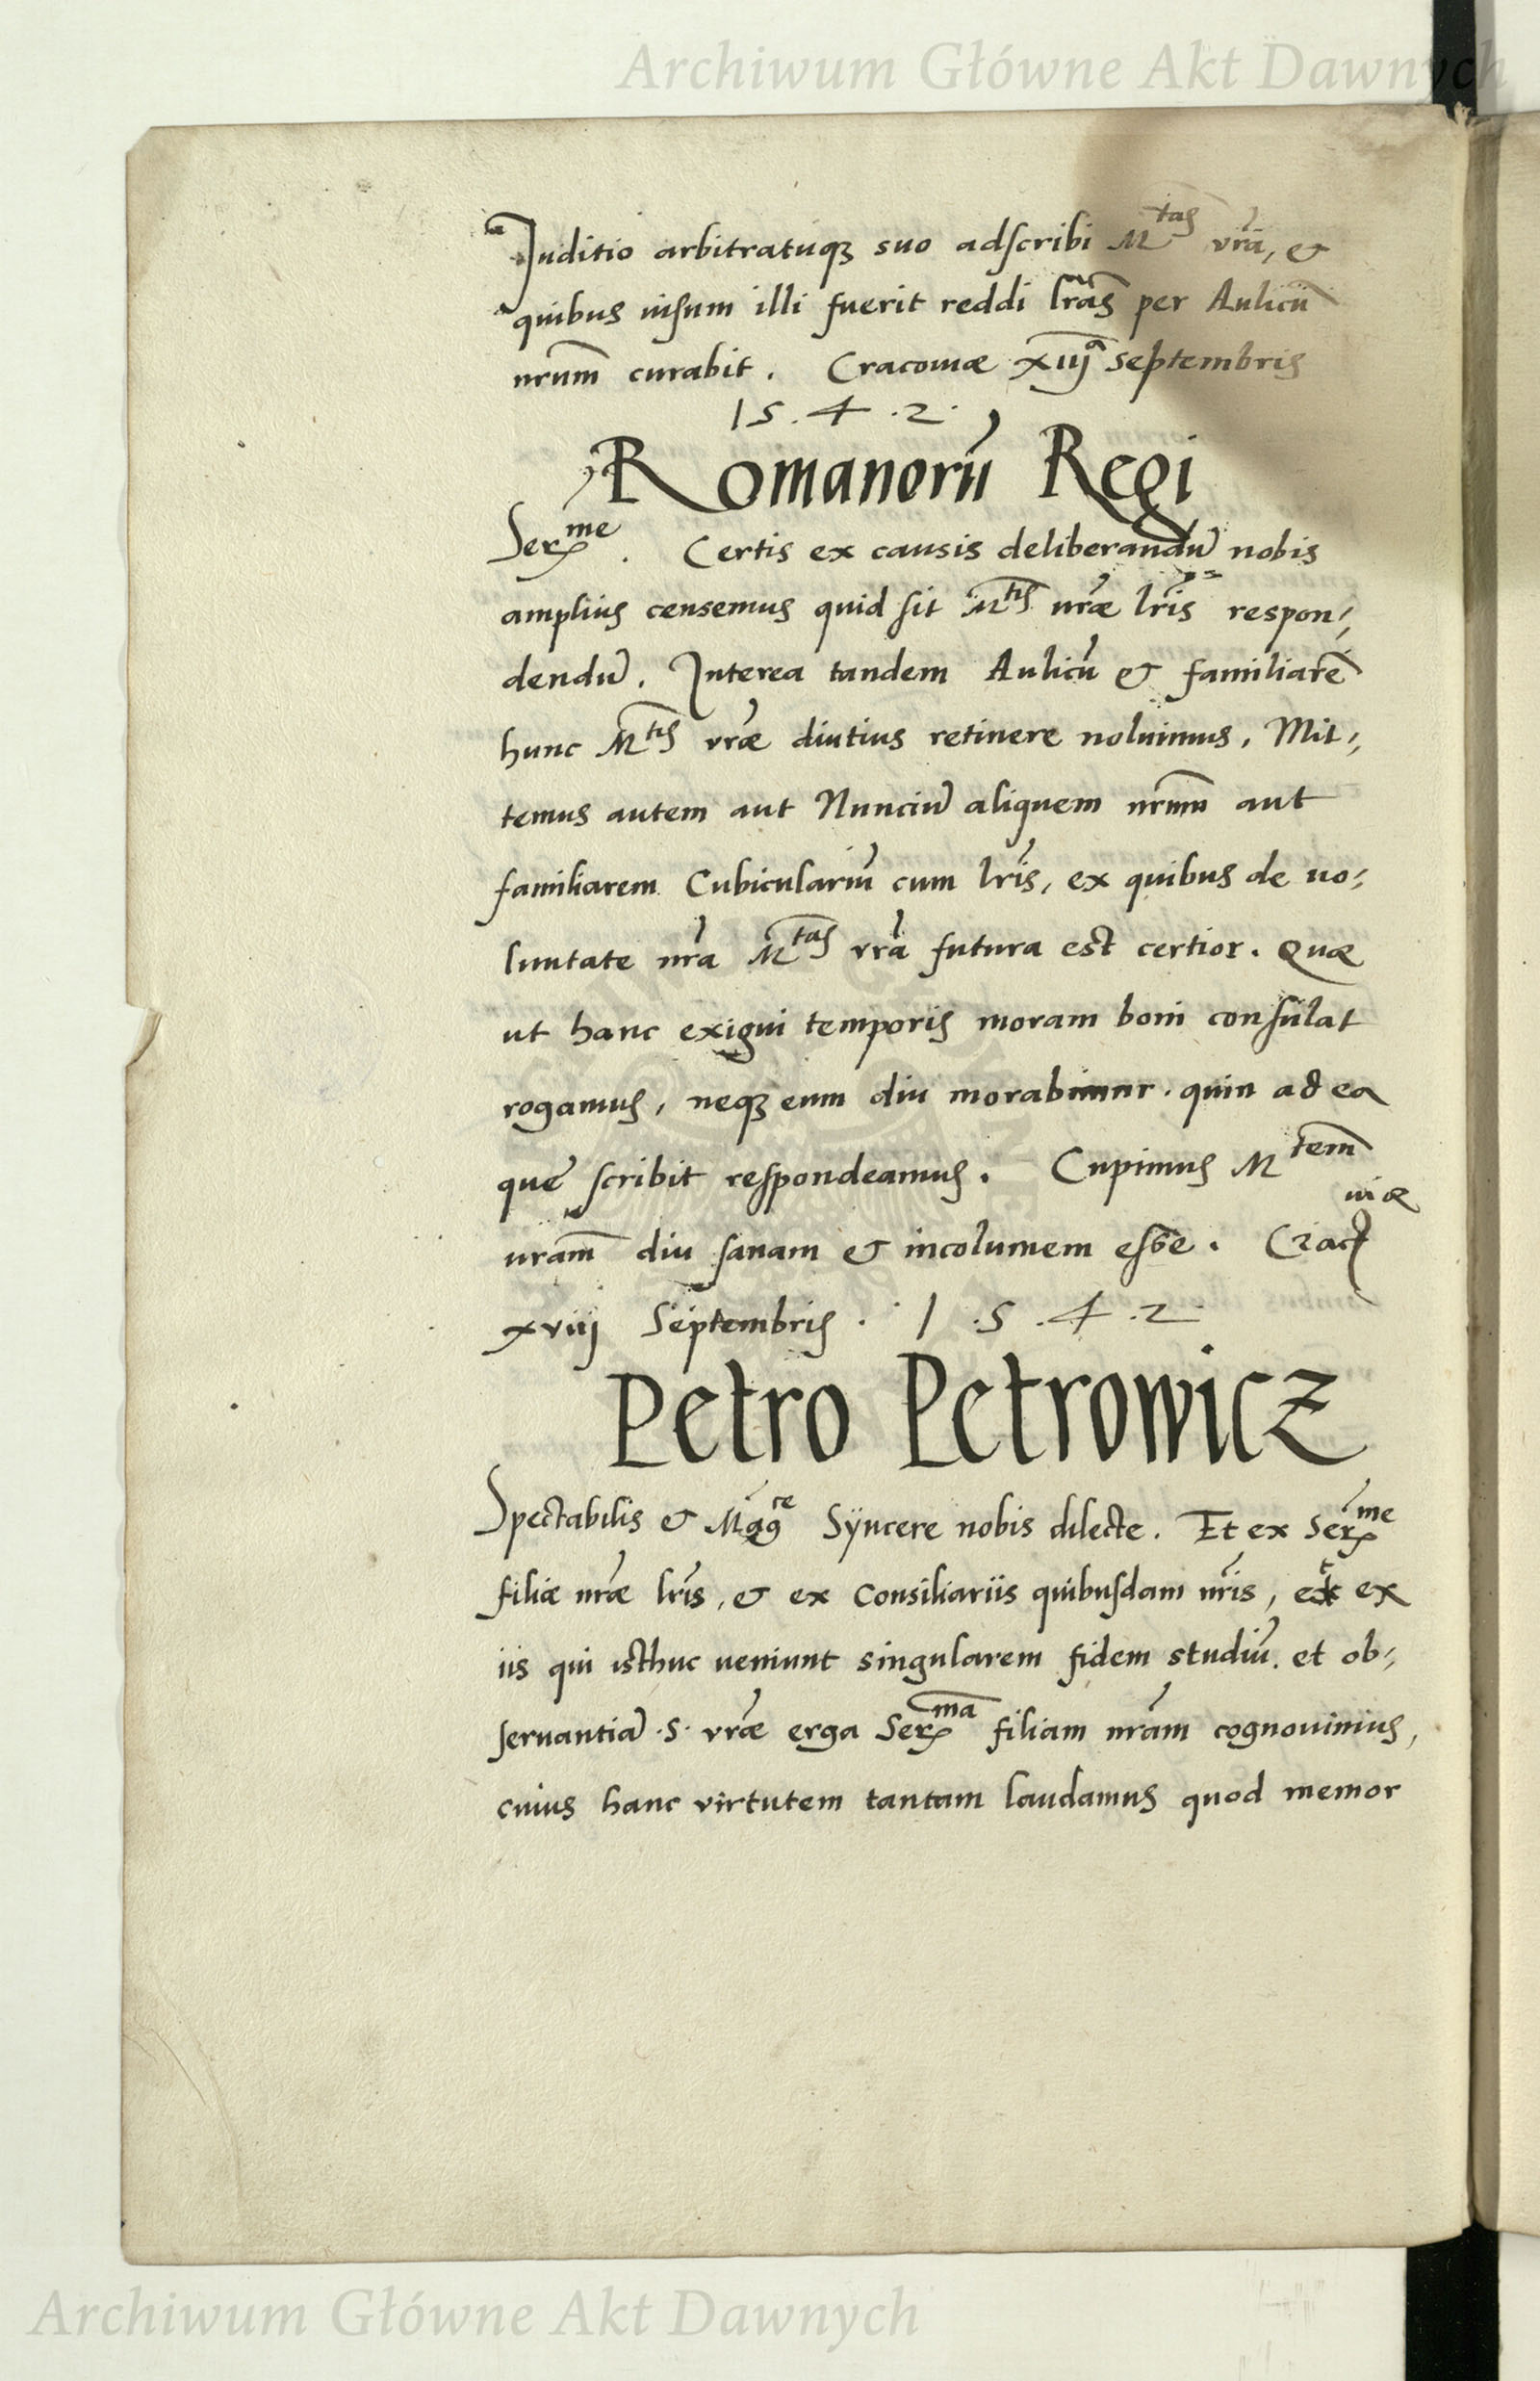 Archiwum Główne Akt Dawnych
Juditio arbitratuqꝫ suo adſcribi M^tas vr̃a, &
quibus uiſum illi fuerit reddi lr̃as per Aulicũ
nrum̃ curabit. Cracouiæ xiiij^a Septembris
15.4.2.
Romanorũ Regi
Ser^me. Certis ex causis deliberandũ nobis
amplius censemus quid ſit M^tis vr̃æ lr̃is respon⸗
dendũ. Interea tandem Aulicũ & familiarẽ
hunc M^tis vr̃æ diutius retinere noluimus, Mit⸗
temus autem aut Nunciũ aliquem nrum̃ aut
familiarem Cubiculariũ cum lr̃is, ex quibus de uo⸗
luntate nr̃a M^tas vr̃a futura est certior. Quæ
ut hanc exigui temporis moram boni conſulat
rogamus, neqꝫ eum diu morabimur. quin ad ea
quę scribit reſpondeamus. Cupimus M^tem
uram̃ diu ſanam & incolumem eſse. Crac^uiæ
xviij Septembris. 1.5.4.2
Petro Petrowicz
Spectabilis & Mag^ce Syncere nobis dilecte. Et ex Ser^me
filiæ nr̃æ lr̃is, & ex Consiliariis quibuſdam nr̃is, et ex
iis qui isthuc ueniunt singularem fidem studiũ. et ob⸗
ſeruantiã .S. vr̃æ erga Ser^ma filiam nr̃am cognouimus,
cuius hanc virtutem tantam laudamus quod memor
Archiwum Główne Akt Dawnych